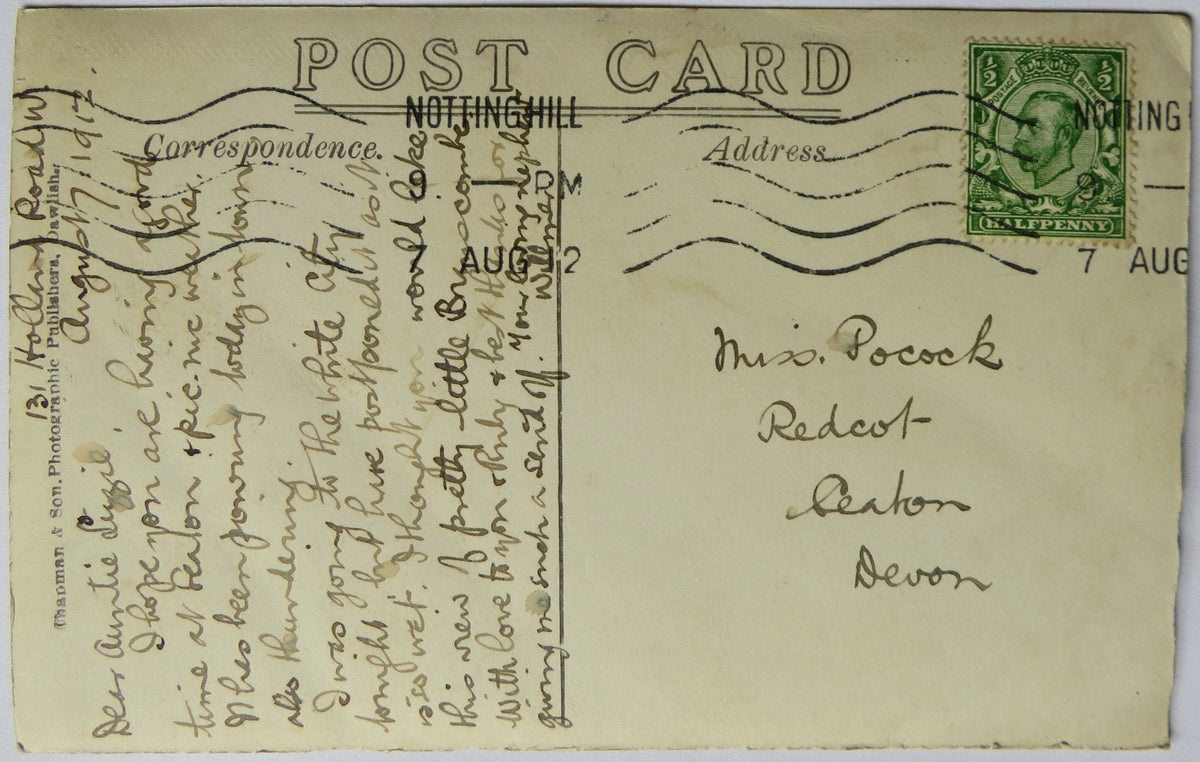 POST CARD
Correspondence.
Address
NOTTING HILL
9 — PM
7 AUG 12
NOTTING
9 —
7 AUG
½ ½
HALFPENNY
Chapman & Son, Photographic Publishers, Dawlish.
131 Holland Road W
August 7. 1912.
Dear Auntie Lizzie
I hope you are having good
time at Seaton & pic-nic weather.
It has been pouring today in town
also thundering
I was going to the White City
tonight but have postponed it as it
is so wet. I thought you would like
this view of pretty little Bruscombe
With love to you & Ruby & best thanks for
giving me such a send off. Your loving nephew
Miss. Pocock
Redcot
Seaton
Devon